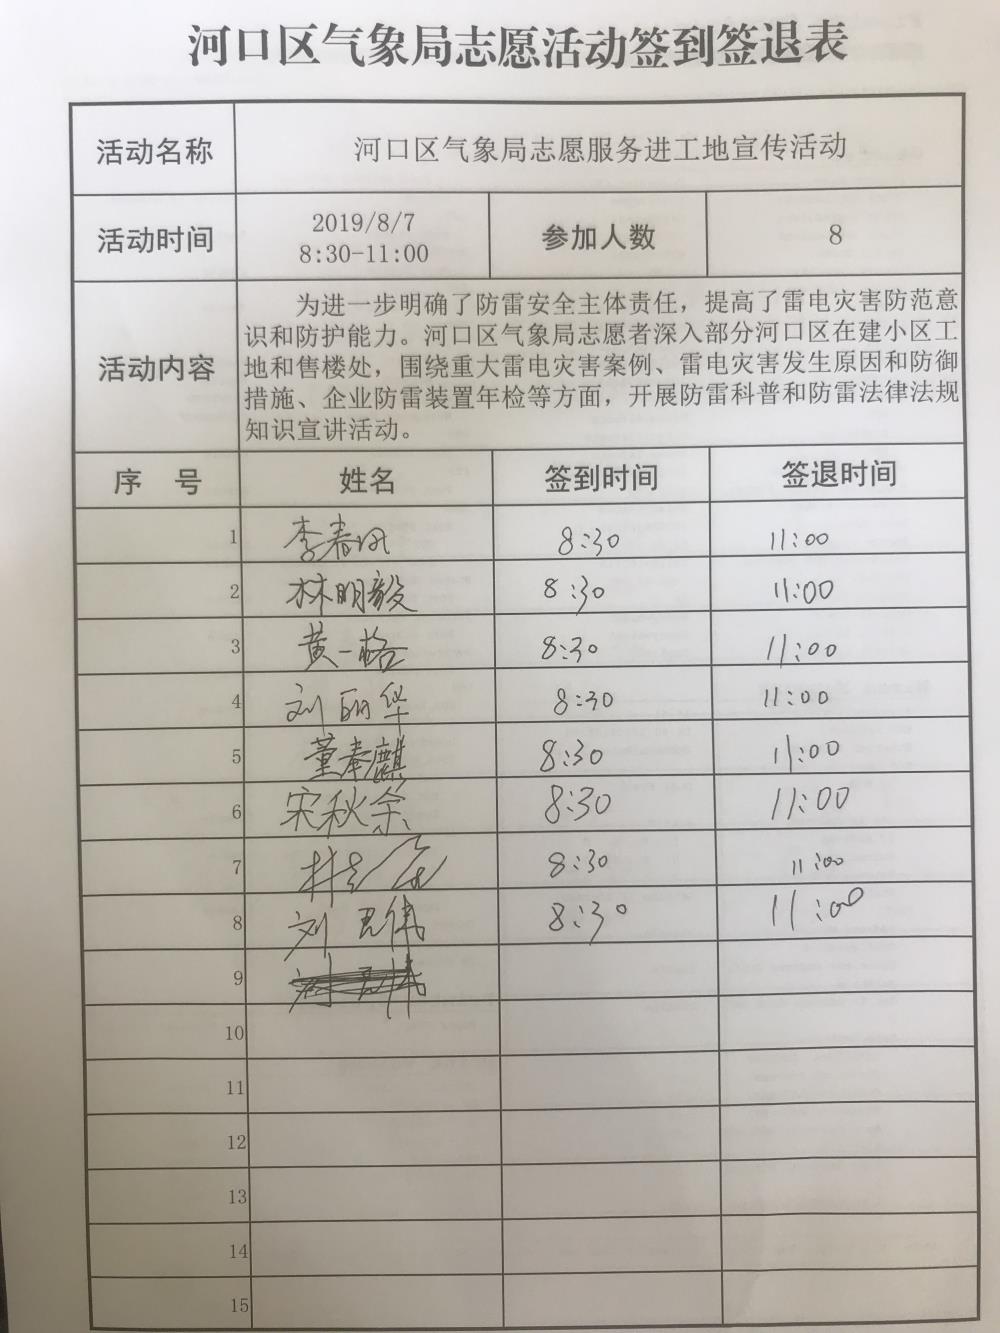 河口区气象局志愿活动签到签退表
活动名称 河口区气象局志愿服务进工地宣传活动
活动时间 2019/8/7 参加人数 8
8:30-11:00
活动内容
为进一步明确了防雷安全主体责任，提高了雷电灾害防范意
识和防护能力。河口区气象局志愿者深入部分河口区在建小区工
地和售楼处，围绕重大雷电灾害案例、雷电灾害发生原因和防御
措施、企业防雷装置年检等方面，开展防雷科普和防雷法律法规
知识宣讲活动。
序 号 姓名 签到时间 签退时间
1 李春 8:30 11:00
2 林明毅 8:30 11:00
3 黄一格 8:30 11:00
4 刘丽华 8:30 11:00
5 董奉麒 8:30 11:00
6 宋秋余 8:30 11:00
7 8:30 11:00
8 刘君伟 8:30 11:00
9
10
11
12
13
14
15